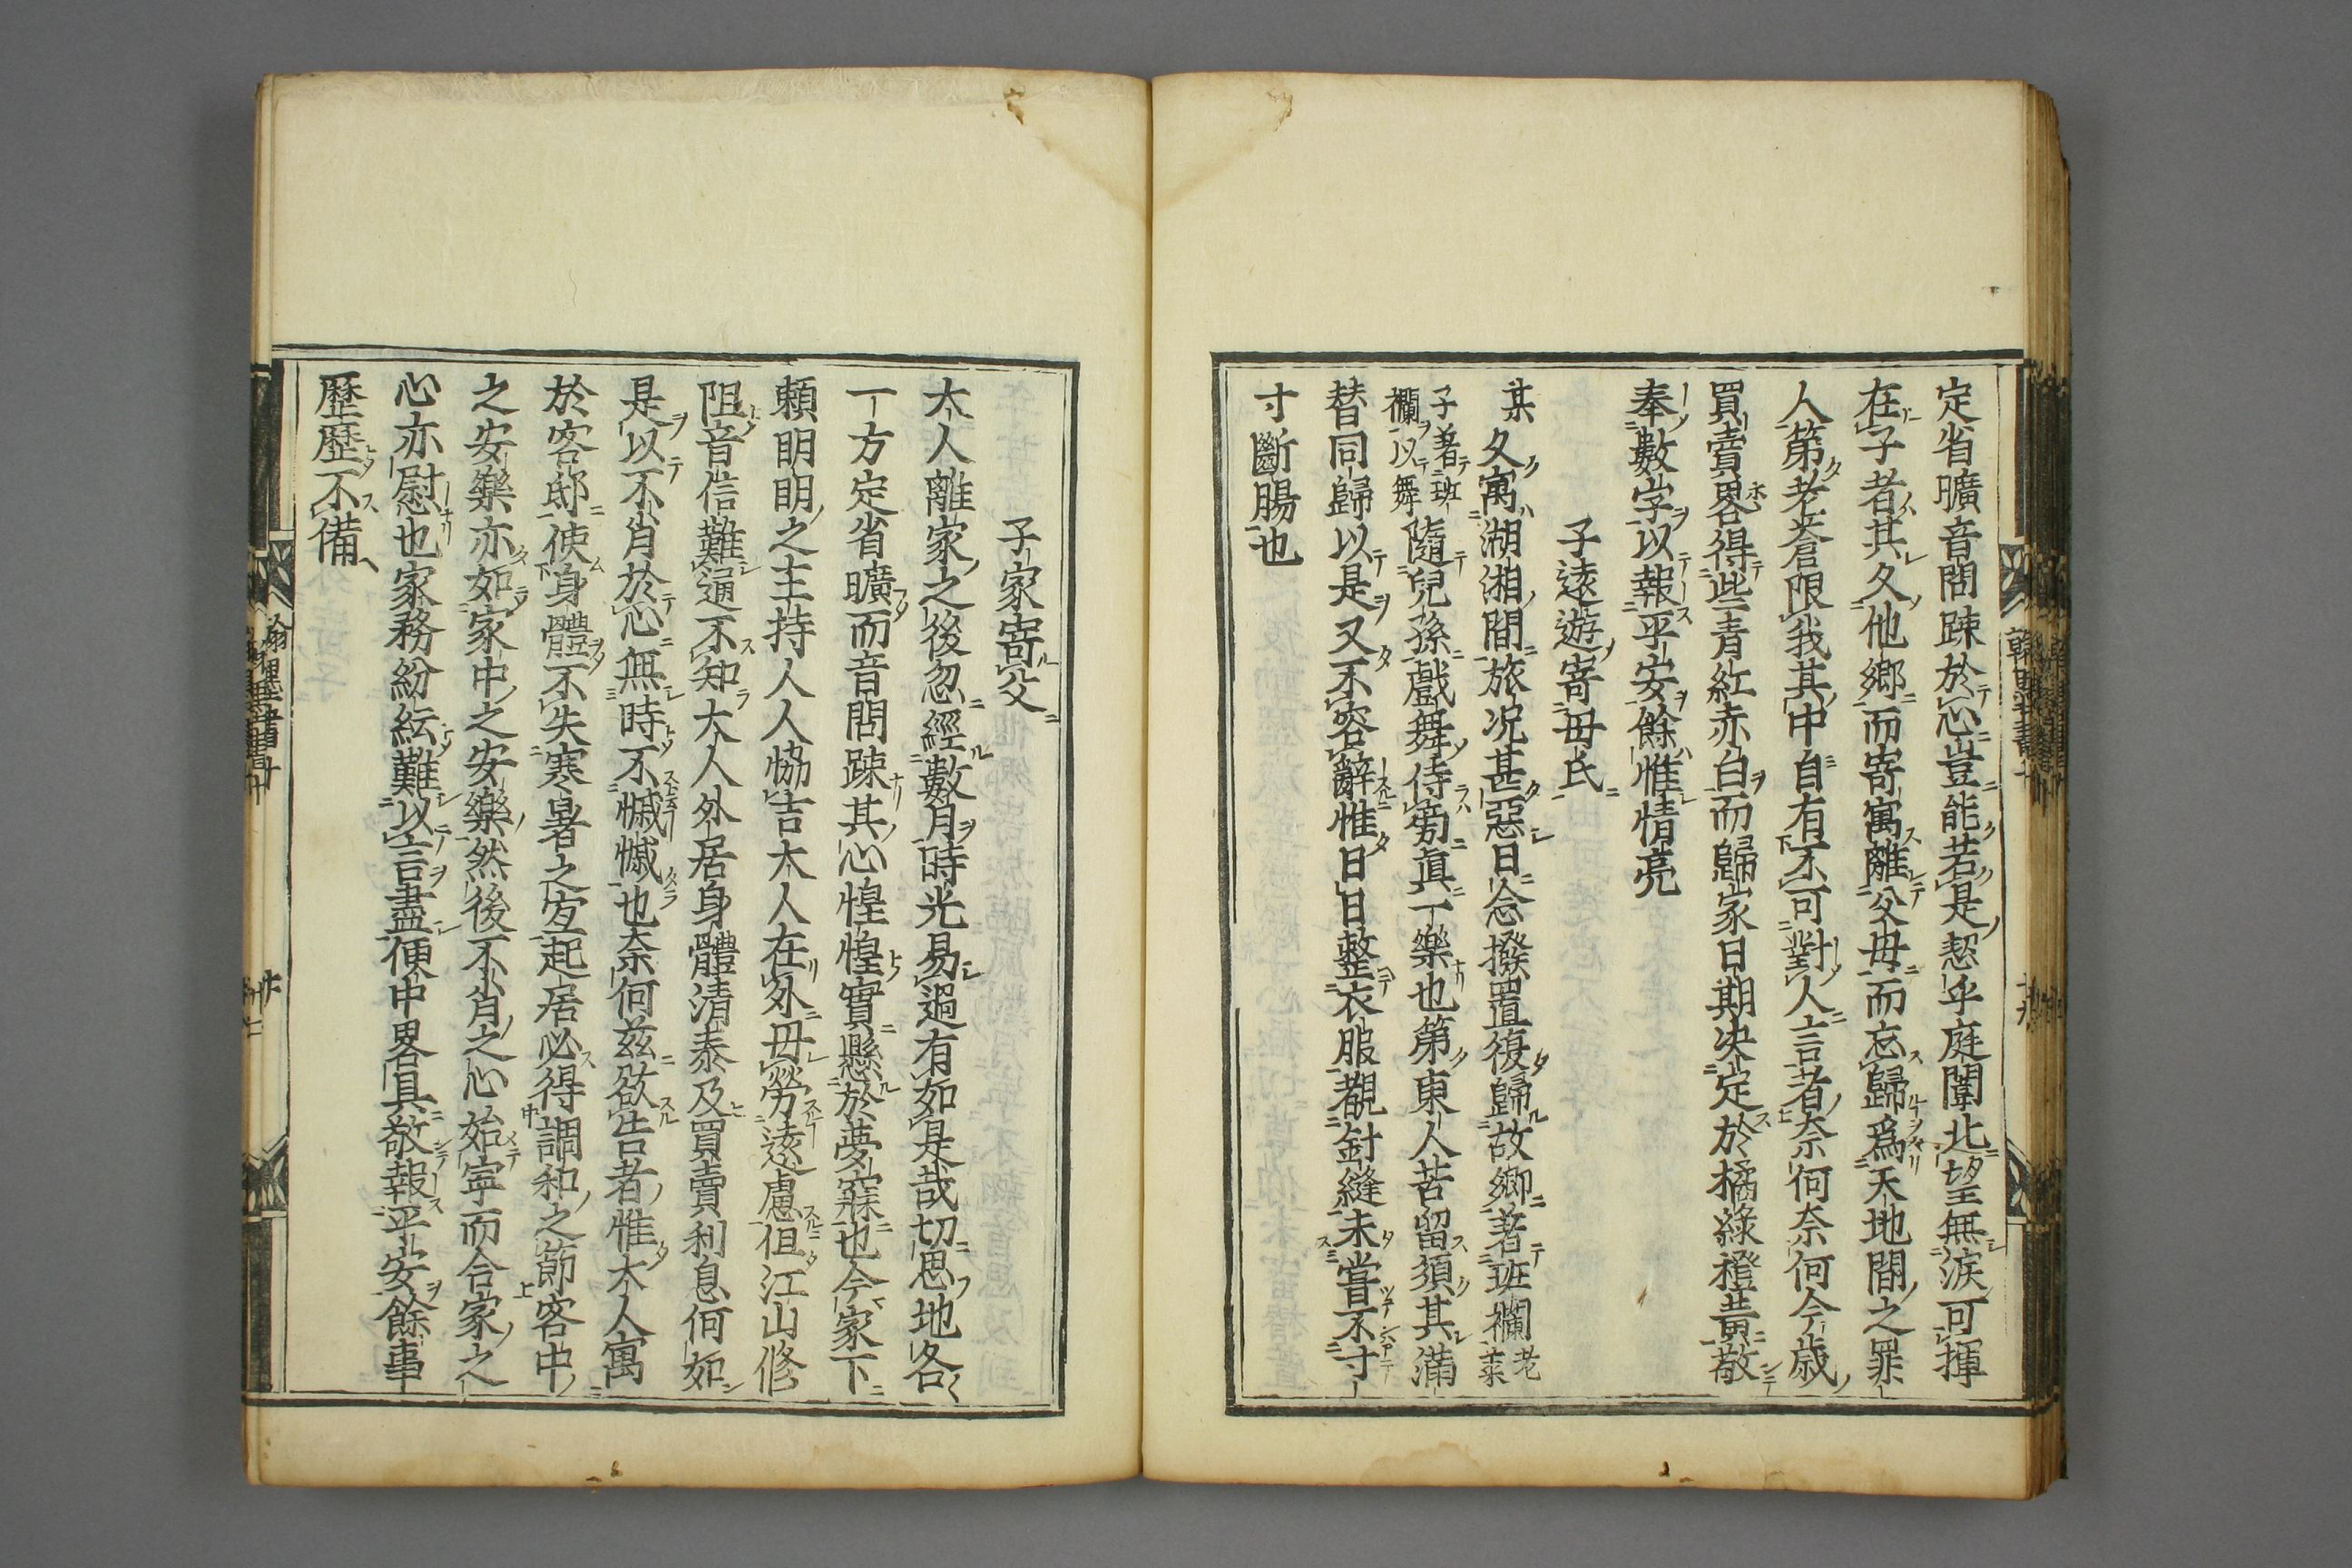 定省曠音問踈於心豈能若是恝乎庭闈北望無淚可揮
在子者其久他鄉而寄寓離父母而忘歸爲天地間之罪
人第老蒼限我其中自有不可對人言者奈何奈何今歲
買賣畧得些青紅赤白而歸家日期决定於橘綠橙黃敬
奉數字以報平安餘惟情亮
子遠遊寄母氏
某久寓湖湘間旅况甚惡日念撥置復歸故鄉著班斕老萊
子着班
斕以舞隨兒孫戲舞侍旁眞一樂也第東人苦留須其滿
替同歸以是又不容辭惟日日整衣服覩針縫未嘗不寸
寸斷腸也
子家寄父
大人離家之後忽經數月時光易過有如是哉切思地各
一方定省曠而音問踈其心惶惶實懸於夢寐也今家下
頼明明之主持人人恊吉大人在外毋勞遠慮但江山修
阻音信難通不知大人外居身體清泰及買賣利息何如
是以不肖於心無時不慽慽也奈何兹欲告者惟大人寓
於客邸使身體不失寒暑之宜起居必得調和之節客中
之安樂亦如家中之安樂然後不肖之心始寧而合家之
心亦慰也家務紛紜難以言盡便中畧具敬報平安餘事
歷歷不備